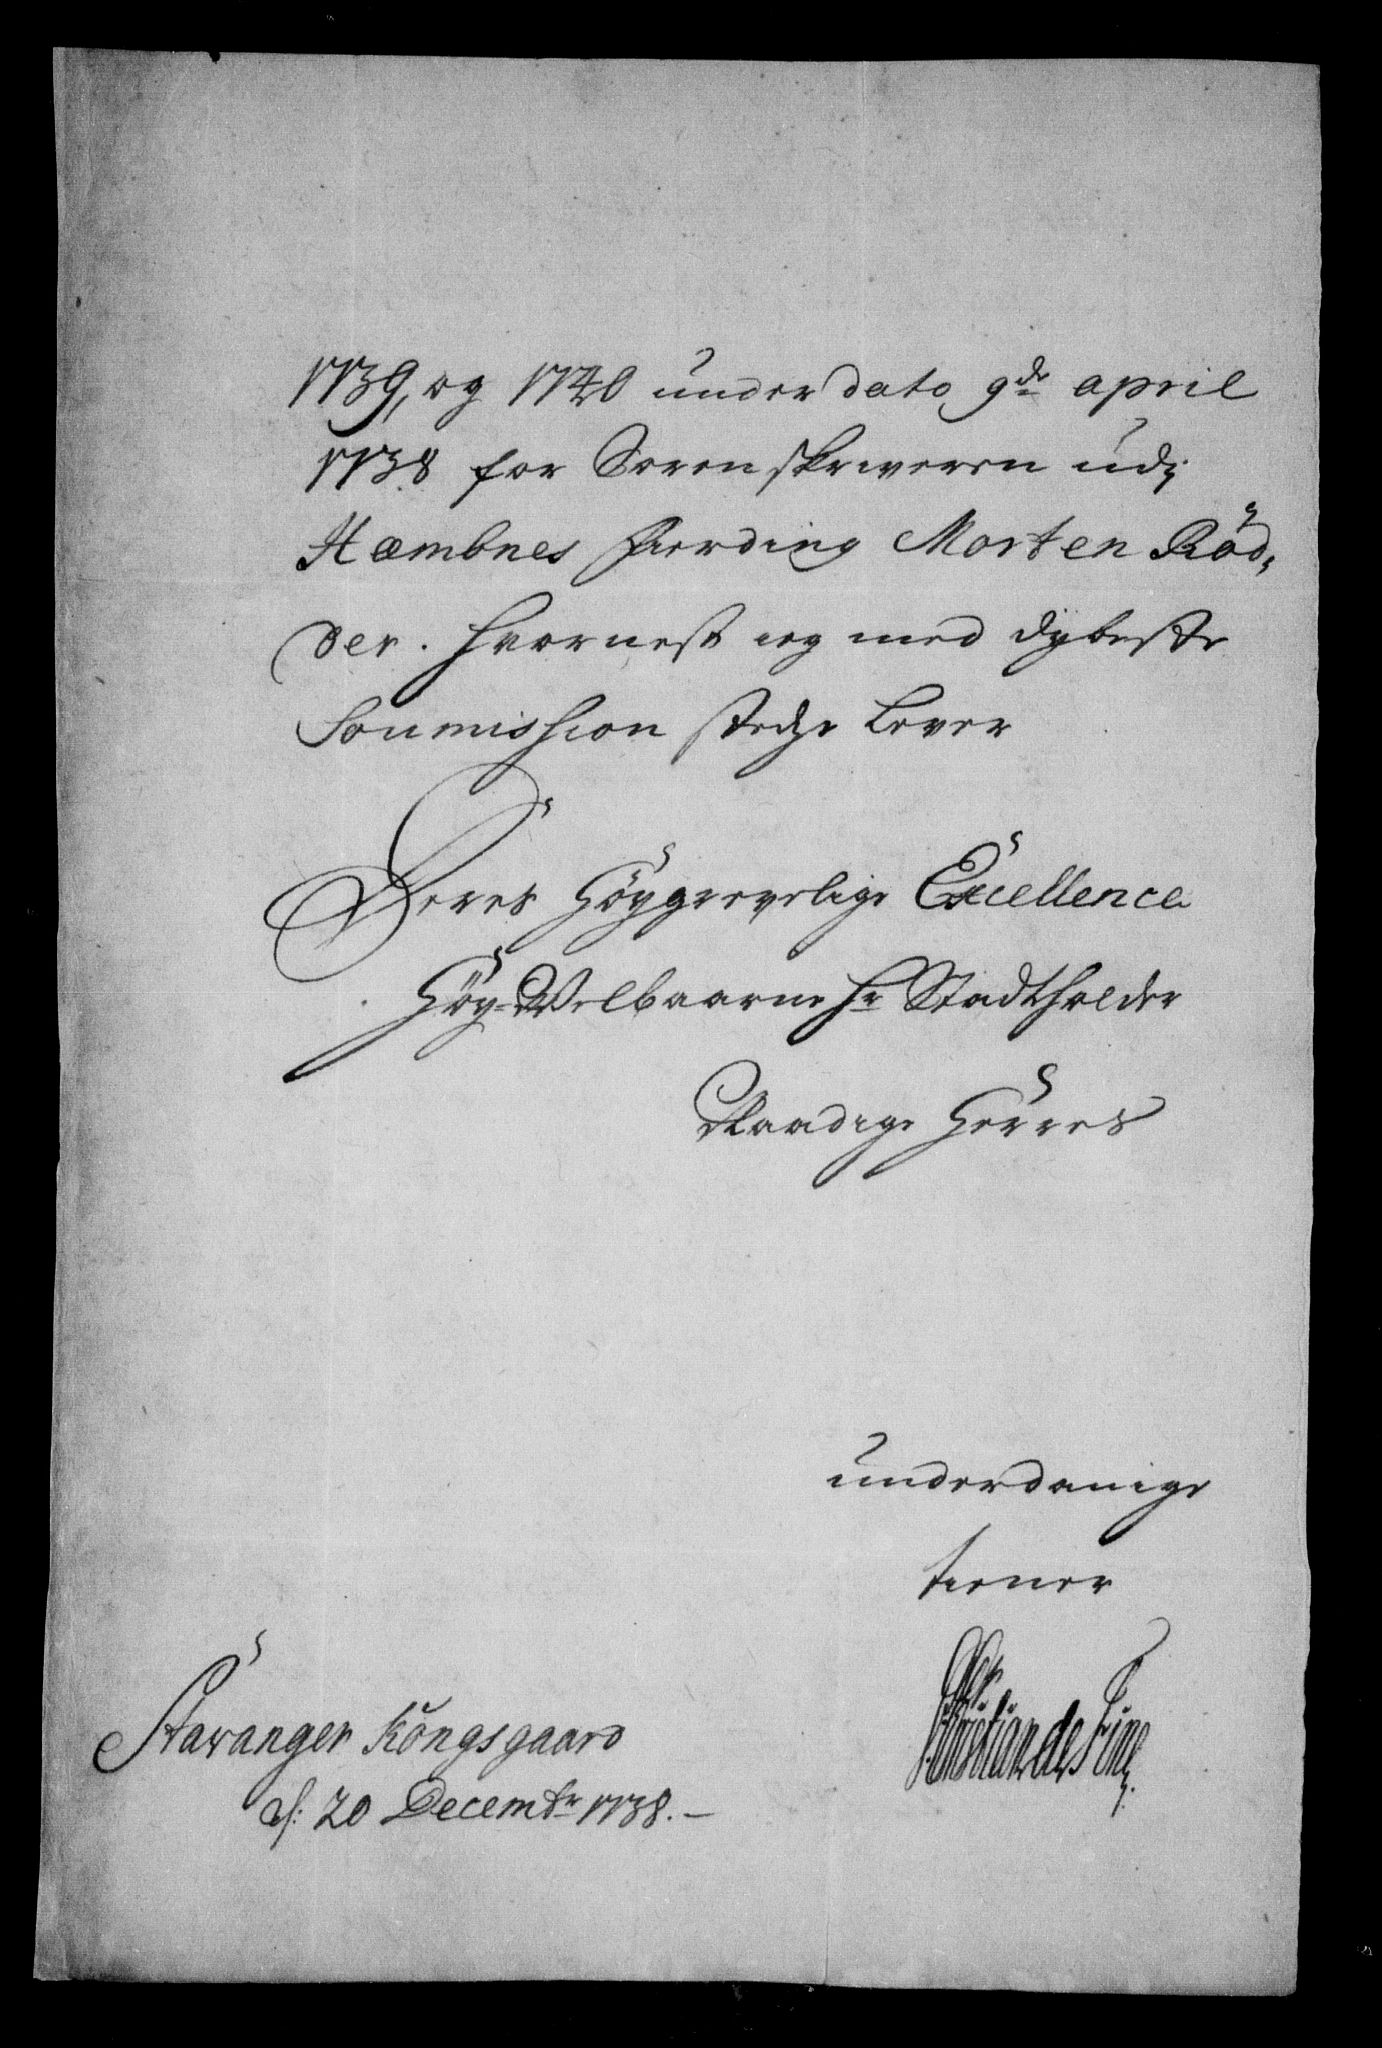 1739, og 1740 under dato 9de april
1738 for Sorenskriveren udj
Hæmbnes Fierding Morten Röd,
der. hvornest ieg med dybeste
Soumishion stedze lever
Deres Höygrevelige Excellence
Höy-Welbaarne Hr Stadtholder
Naadige Herres
underdanige
tiener
Bendix Christian de Fine
Stavanger Kongsgaard
d: 20 Decembr 1738.